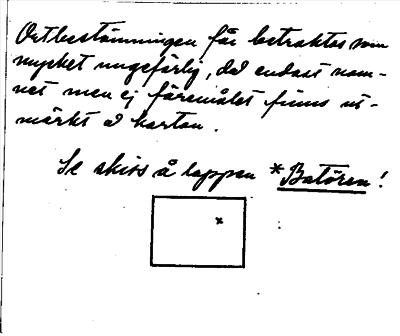 Ortbestämningen får betraktas som
mycket ungefärlig, då endast nam-
net men ej föremålet finns ut-
märkt å kartan.
Se skiss å lappen *Batören!
x